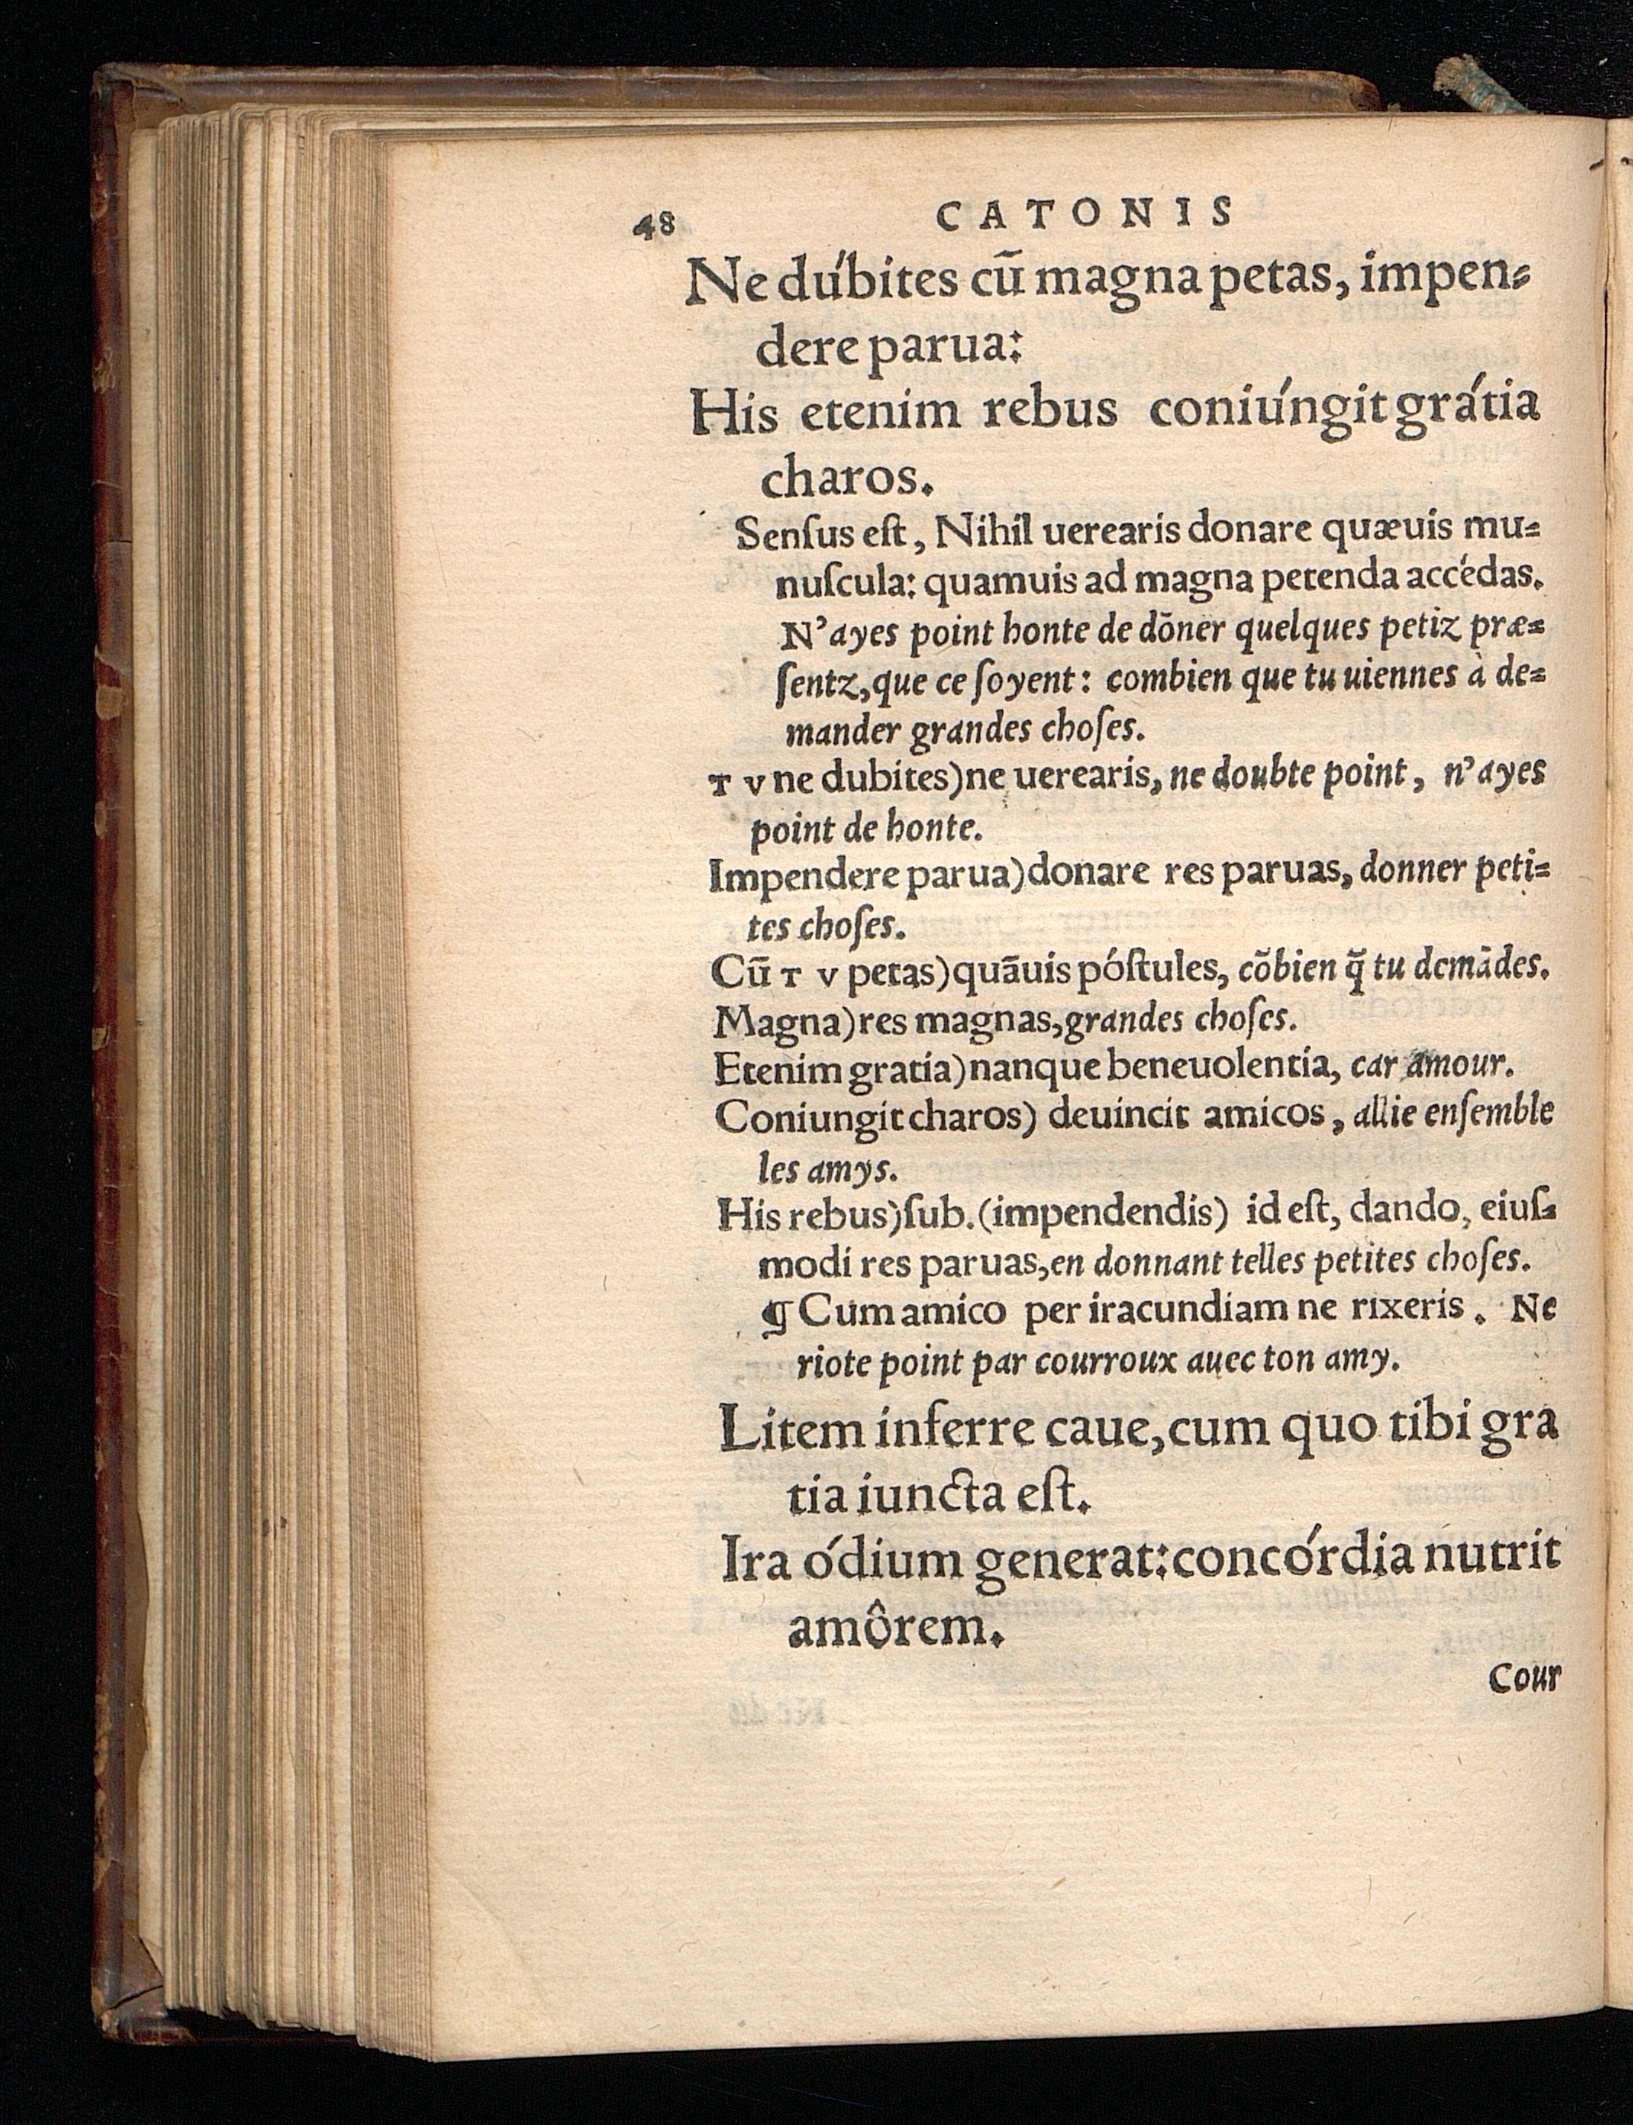 48 CATONIS
Ne dúbites cū magna petas, impen⸗
dere parua:
His etenim rebus coniúngit grátia
charos.
Senſus eſt, Nihil uerearis donare quæuis mu⸗
nuſcula: quamuis ad magna petenda accédas.
N'ayes point honte de dōner quelques petiz præ⸗
ſentz, que ce ſoyent: combien que tu uiennes à de⸗
mander grandes choſes.
T V ne dubites) ne uerearis, ne doubte point, n'ayes
point de honte.
Impendere parua) donare res paruas, donner peti⸗
tes choſes.
Cū T V petas) quāuis póſtules, cōbien q̃ tu demādes.
Magna) res magnas, grandes choſes.
Etenim gratia) nanque beneuolentia, car amour.
Coniungit charos) deuincit amicos, allie enſemble
les amys.
His rebus) ſub. (impendendis) id eſt, dando, eiuſ⸗
modi res paruas, en donnant telles petites choſes.
¶ Cum amico per iracundiam ne rixeris. Ne
riote point par courroux auec ton amy.
Litem inferre caue, cum quo tibi gra
tia iuncta eſt.
Ira ódium generat: concórdia nutrit
amôrem.
Cour